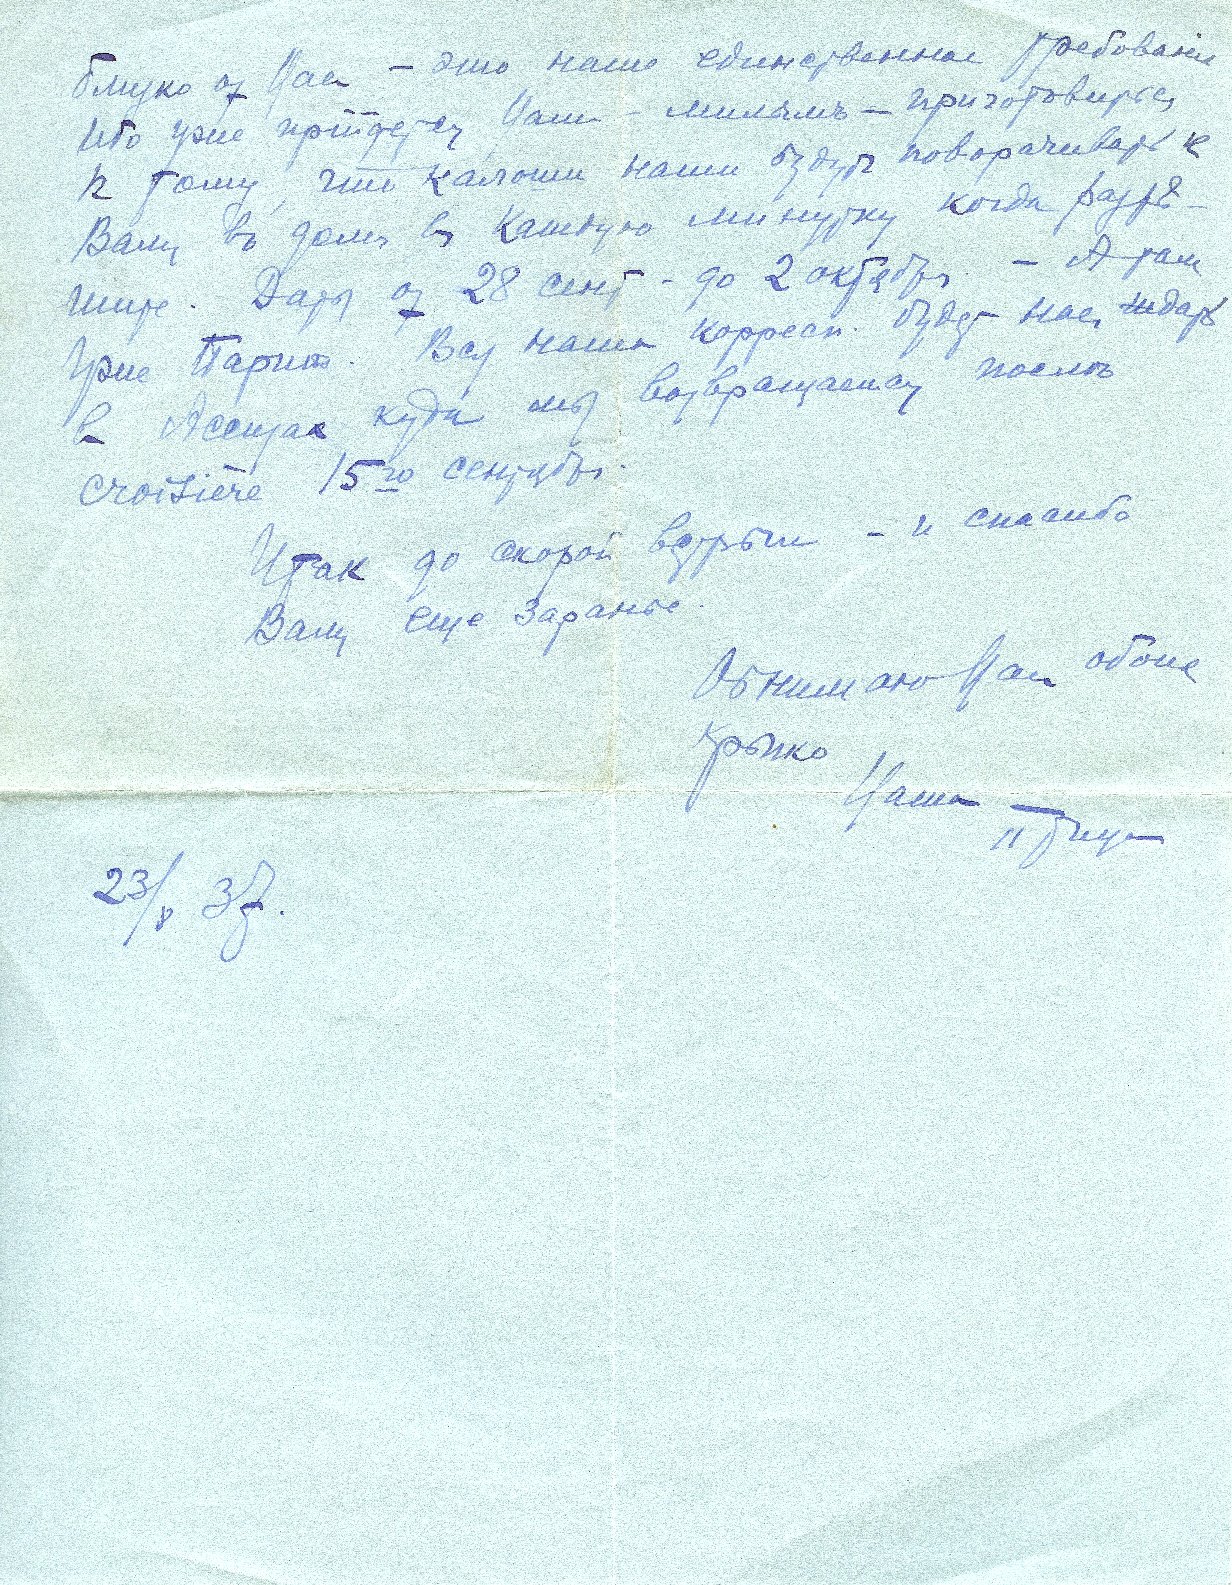 близко от Вас — это наше единственное требованiе
ибо уже прiйдется Вам — милымъ — приготовиться
к тому что калоши наши будутъ поворачивать к
Вамъ въ домъ въ каждую минутку когда разрѣ-
шите. Даты от 28 сент - до 2 октября — А там
уже Париж. Вся наша корресп. будет нас ждать
в куда мы возвращаемся послѣ
croisière 15го сентября.
Итак до скорой встрѣчи — и спасибо
Вамъ еще заранѣе.
Обнимаю Вас обоих
крѣпко
Ваша
птица
23/8 37.